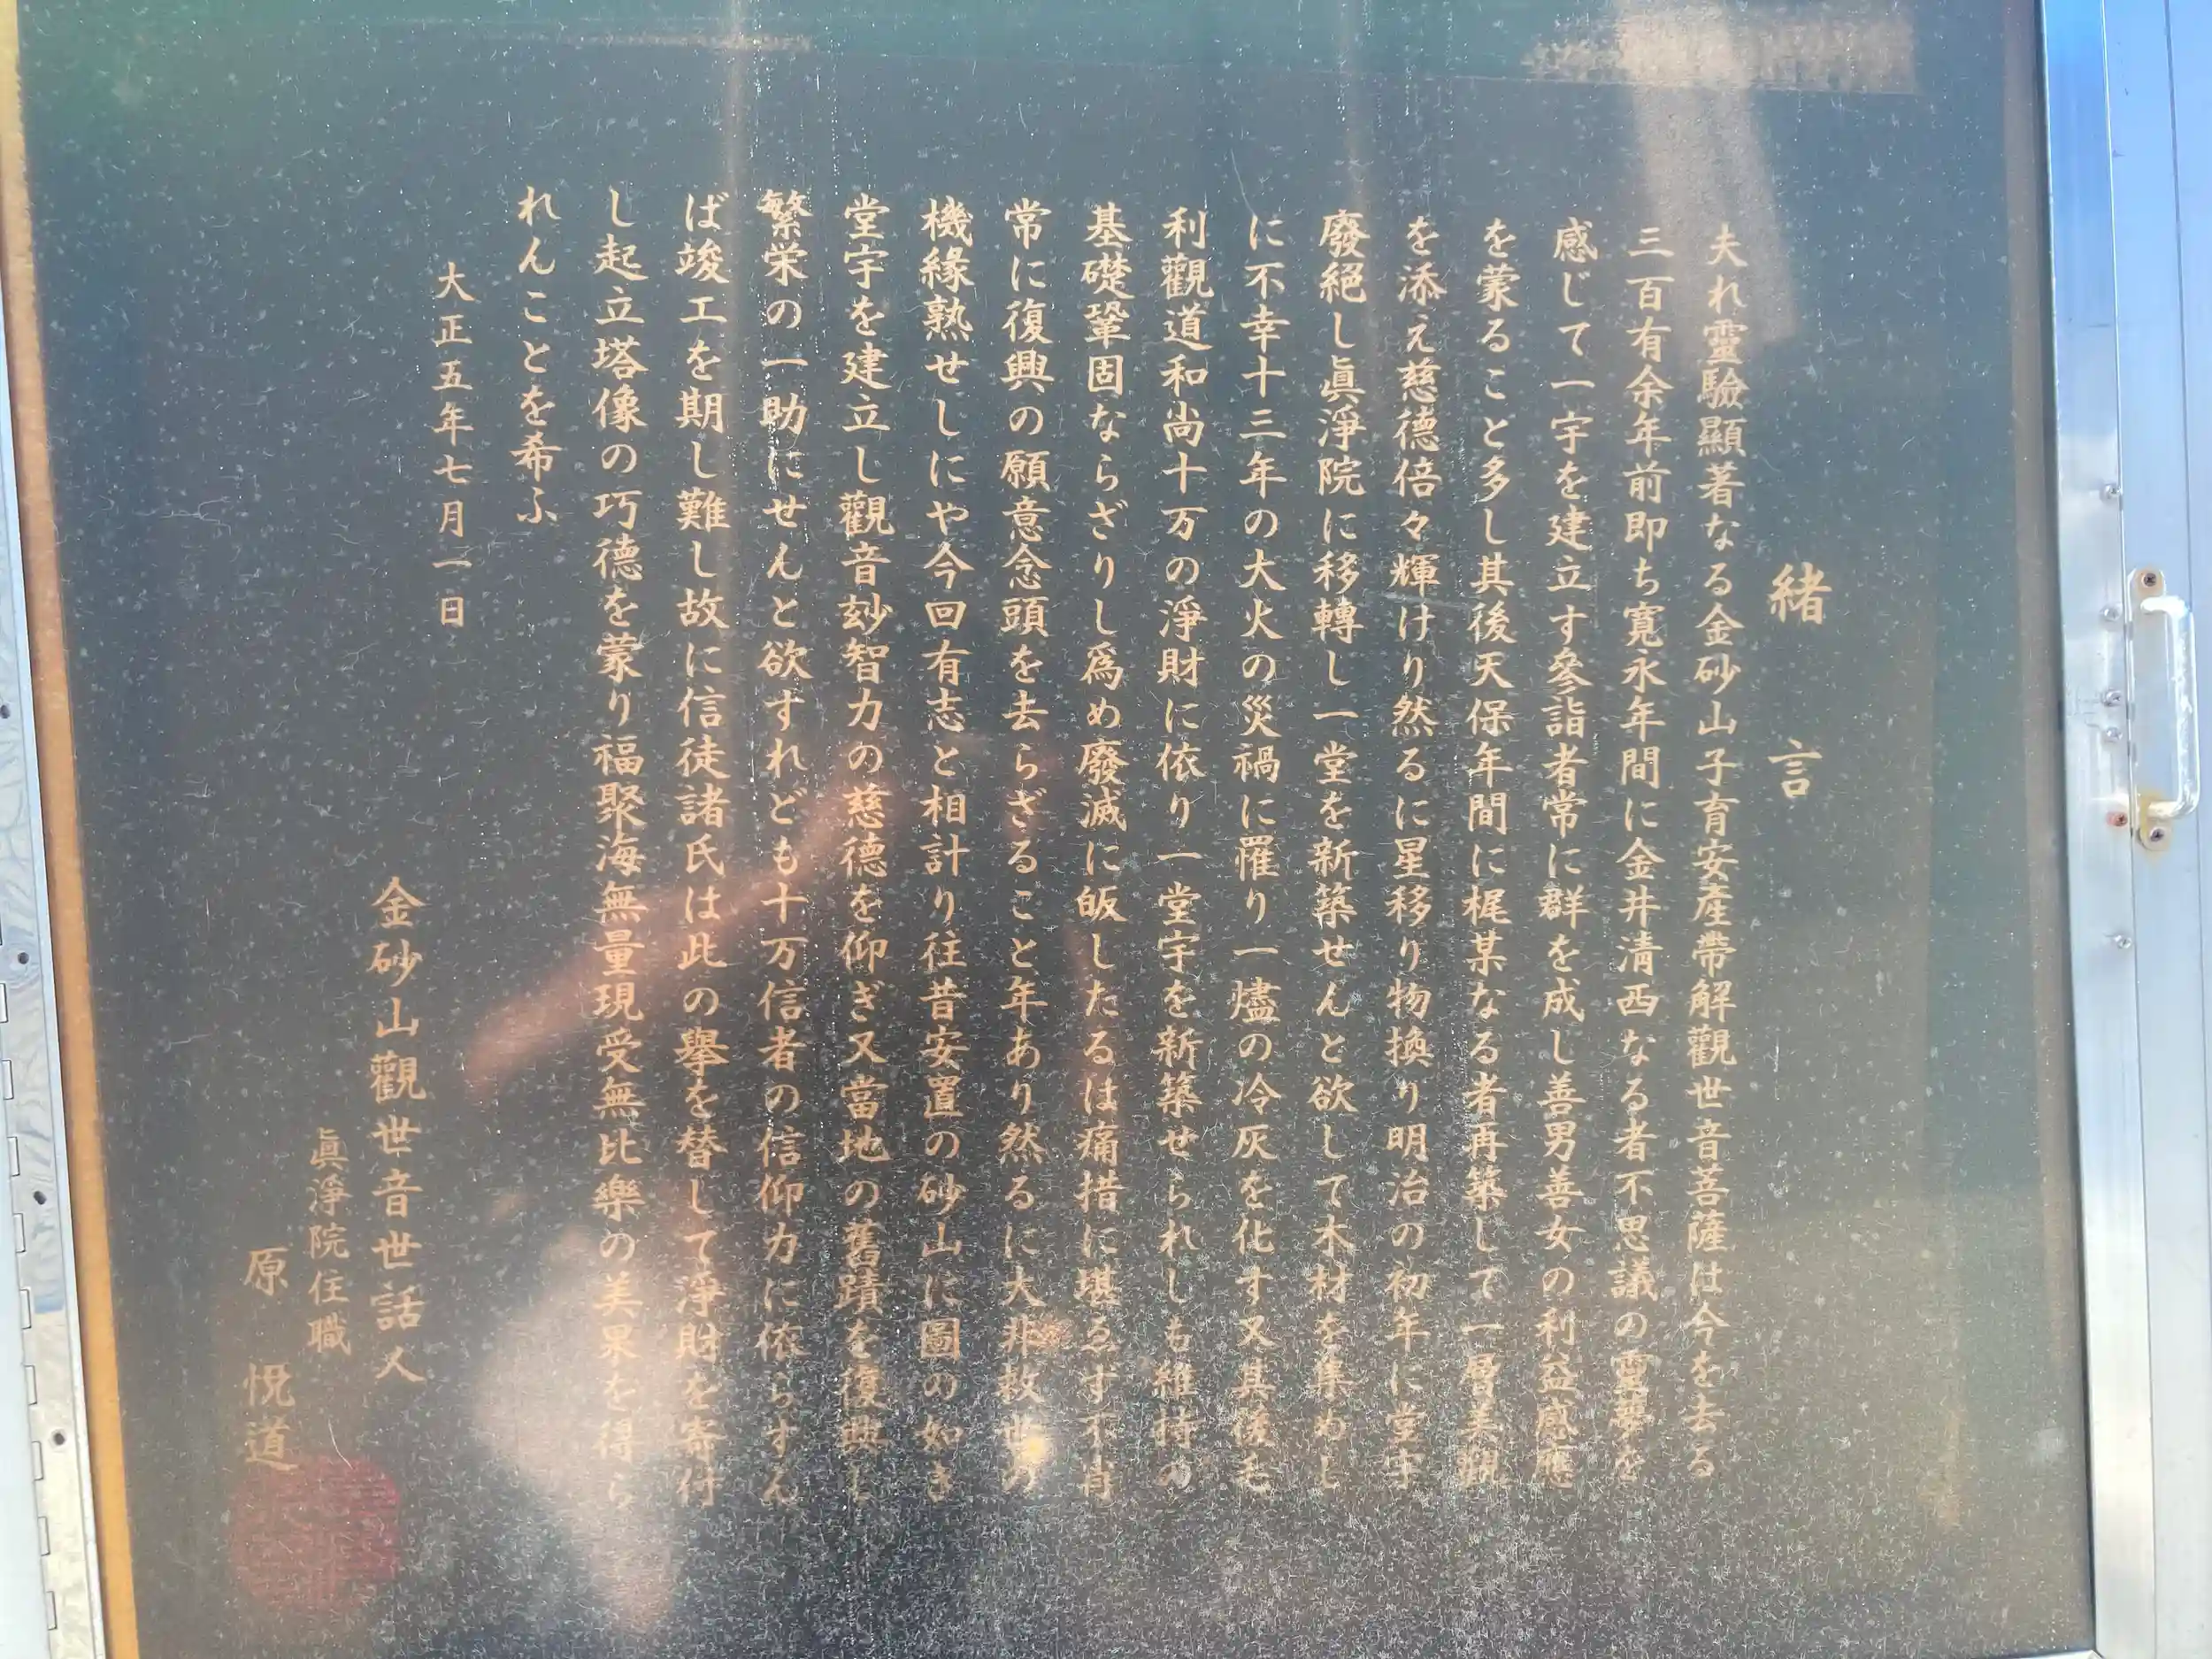 緒言
夫れ靈驗顯著なる金砂山子育安産帶解觀世音菩薩は今を去る
三百有余年前即ち寛永年間に金井清西なる者不思議の靈夢を
感じて一宇を建立す參詣者常に群を成し善男善女の利益感應
を蒙ること多し其後天保年間に梶某なる者再築して一層美觀
を添え慈德倍々輝けり然るに星移り物換り明治の初年に堂宇
廢絕し眞淨院に移轉し一堂を新築せんと欲して木材を集めし
に不幸十三年の大火の災禍に罹り一燼の冷灰を化す又其後毛
利觀道和尚十万の淨財に依り一堂宇を新築せられしも維持の
基礎鞏固ならざりし爲め廢滅に皈したるは痛措に堪ゑず不肖
常に復興の願意念頭を去らざること年あり然るに大非救世の
機緣熟せしにや今回有志と相計り往昔安置の砂山に圖の如き
堂宇を建立し觀音玅智力の慈德を仰ぎ又當地の舊蹟を復興し
繁栄の一助にせんと欲すれども十万信者の信仰力に依らずん
ば竣工を期し難し故に信徒諸氏は此の擧を替して淨財を寄付
し起立塔像の巧德を蒙り福聚海無量現受無比樂の美果を得ら
れんことを希ふ
大正五年七月一日
金砂山觀世音世話人
眞淨院住職
原悅道